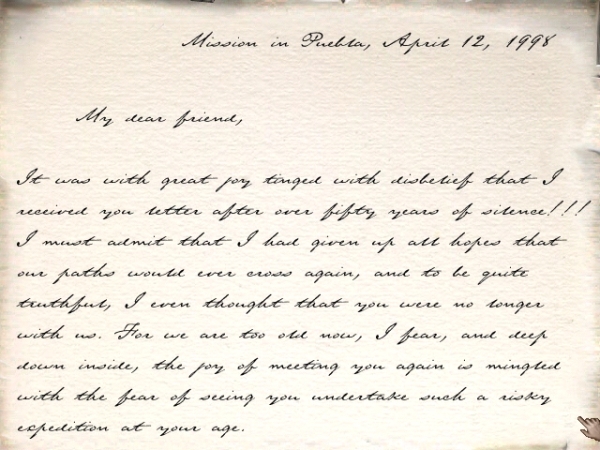 Mission in Puebla, April 12, 1998
My dear friend,
It was with great joy tinged with disbelief that I
received you letter after over fifty years of silence!!!
I must admit that I had given up all hopes that
our paths would ever cross again, and to be quite
truthful, I even thought that you were no longer
with us. For we are too old now, I fear, and deep
down inside, the joy of meeting you again is mingled
with the fear of seeing you undertake such a risky
expedition at your age.